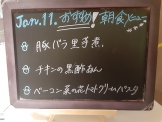 Jan.11. おすすめ! 朝食メニュー
豚バラ里芋煮
チキンの黒酢あん
ベーコン菜の花トマトクリームパスタ